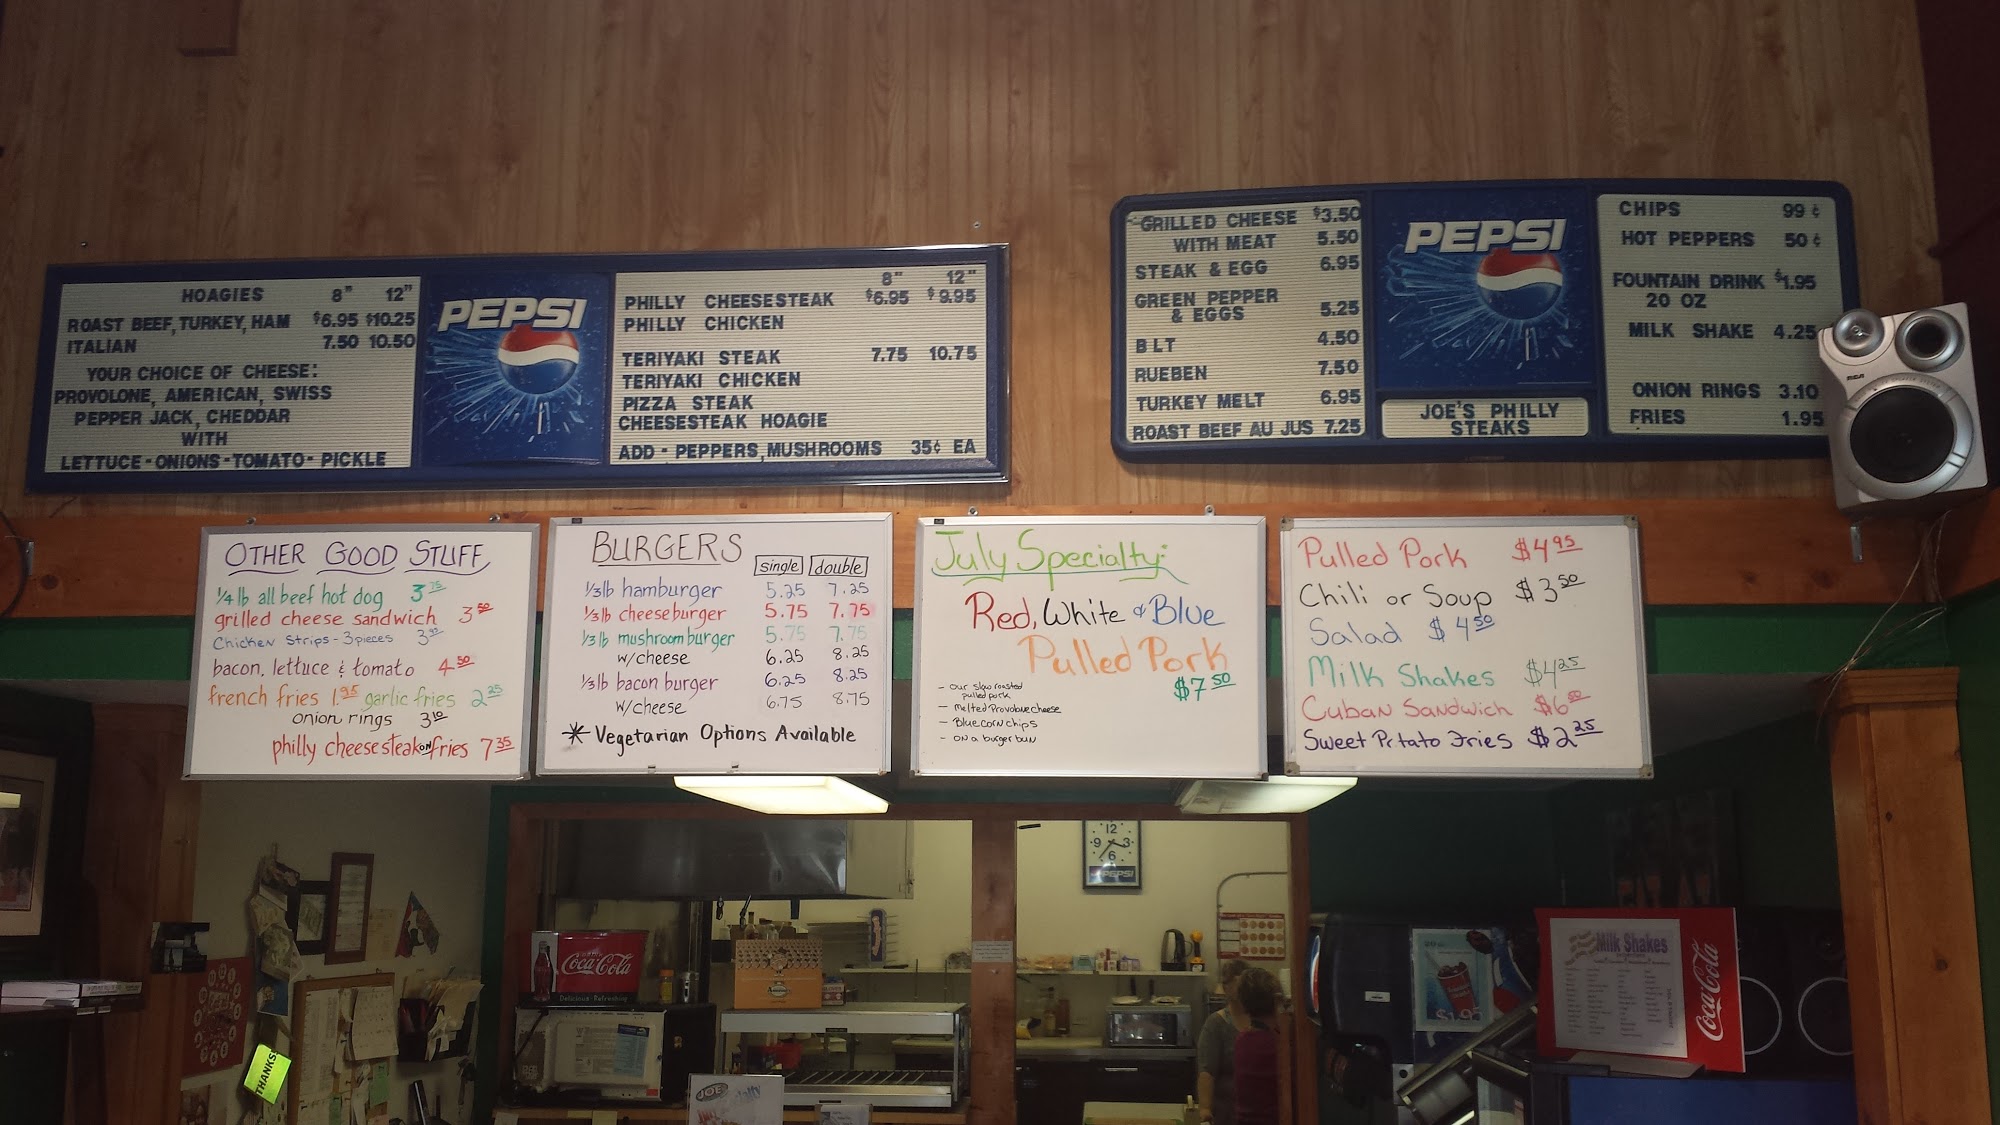 HOAGIES 8" 12"
ROAST BEEF, TURKEY, HAM $6.95 $10.25
ITALIAN 7.50 10.50
YOUR CHOICE OF CHEESE:
PROVOLONE, AMERICAN, SWISS
PEPPER JACK, CHEDDAR
WITH
LETTUCE - ONIONS - TOMATO - PICKLE
PEPSI
8" 12"
PHILLY CHEESESTEAK $6.95 $9.95
PHILLY CHICKEN
TERIYAKI STEAK 7.75 10.75
TERIYAKI CHICKEN
PIZZA STEAK
CHEESESTEAK HOAGIE
ADD - PEPPERS, MUSHROOMS 35¢ EA
GRILLED CHEESE $3.50
WITH MEAT 5.50
STEAK & EGG 6.95
GREEN PEPPER
& EGGS 5.25
BLT 4.50
RUEBEN 7.50
TURKEY MELT 6.95
ROAST BEEF AU JUS 7.25
PEPSI
JOE'S PHILLY
STEAKS
CHIPS 99¢
HOT PEPPERS 50¢
FOUNTAIN DRINK $1.95
20 OZ
MILK SHAKE 4.25
ONION RINGS 3.10
FRIES 1.95
RCA
OTHER GOOD STUFF
1/4 lb all beef hot dog 3.75
grilled cheese sandwich 3.50
Chicken Strips - 3 pieces
bacon, lettuce & tomato 4.50
french fries 1.95 garlic fries 2.25
onion rings 3.10
philly cheesesteak on fries 7.35
BURGERS single double
1/3 lb hamburger 5.25 7.25
1/3 lb cheeseburger 5.75 7.75
1/3 lb mushroom burger 5.75 7.75
w/cheese 6.25 8.25
1/3 lb bacon burger 6.25 8.25
w/cheese 6.75 8.75
* Vegetarian Options Available
July Specialty:
Red, White & Blue
Pulled Pork
$7.50
- our slow roasted
pulled pork
- Melted Provolone cheese
- Blue corn chips
- on a burger bun
Pulled Pork $4.95
Chili or Soup $3.50
Salad $4.50
Milk Shakes $4.25
Cuban Sandwich $6.50
Sweet Prtato Fries $2.25
12
9 3
6
PEPSI
Coca-Cola
Delicious Refreshing
THANKS!
JOE'S
Milk Shakes
Coca-Cola